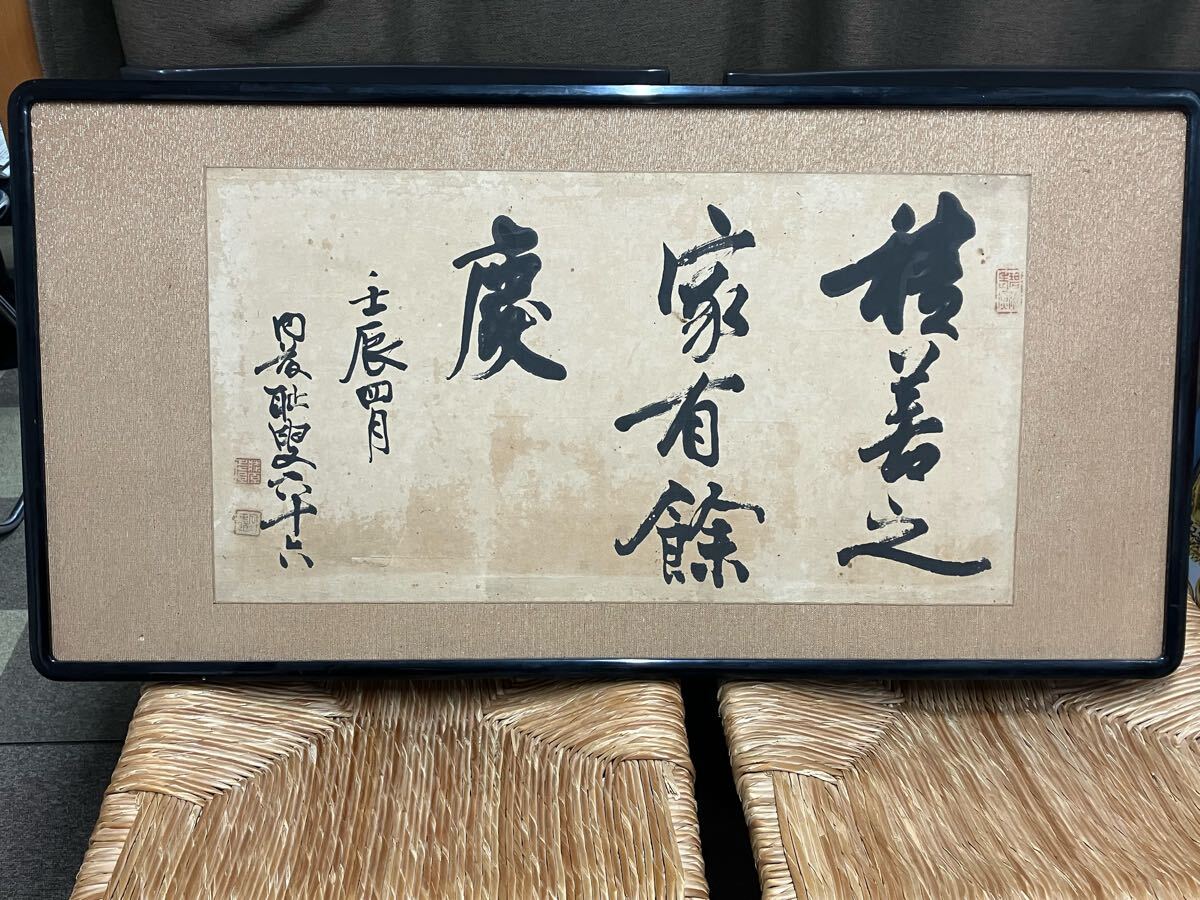 積善之
家有餘
慶
壬辰四月
内藤耻叟六十六